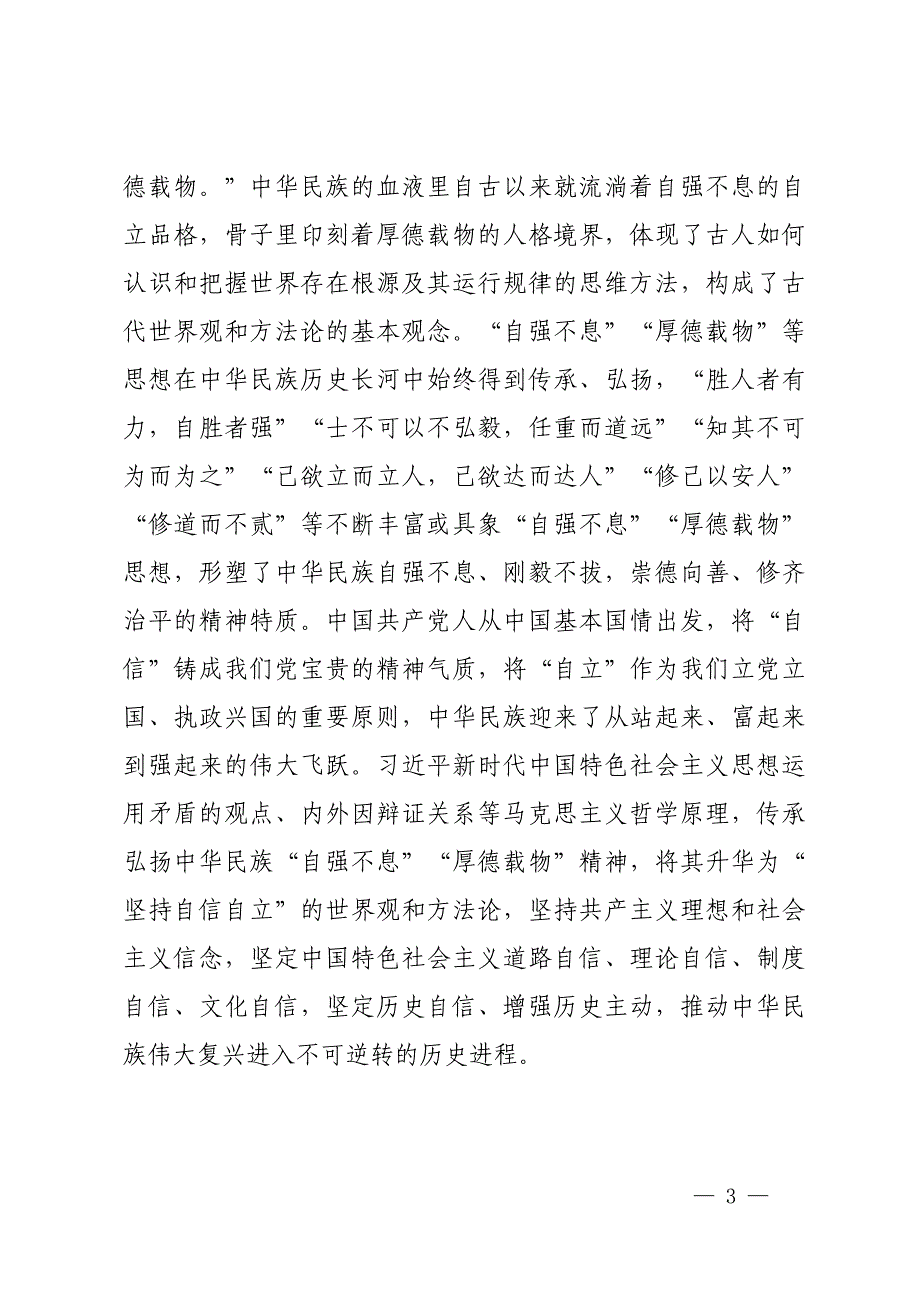 德载物。”中华民族的血液里自古以来就流淌着自强不息的自
立品格，骨子里印刻着厚德载物的人格境界，体现了古人如何
认识和把握世界存在根源及其运行规律的思维方法，构成了古
代世界观和方法论的基本观念。“自强不息”“厚德载物”等
思想在中华民族历史长河中始终得到传承、弘扬，“胜人者有
力，自胜者强”“士不可以不弘毅，任重而道远”“知其不可
为而为之”“己欲立而立人，己欲达而达人”“修己以安人”
“修道而不贰”等不断丰富或具象“自强不息”“厚德载物”
思想，形塑了中华民族自强不息、刚毅不拔，崇德向善、修齐
治平的精神特质。中国共产党人从中国基本国情出发，将“自
信”铸成我们党宝贵的精神气质，将“自立”作为我们立党立
国、执政兴国的重要原则，中华民族迎来了从站起来、富起来
到强起来的伟大飞跃。习近平新时代中国特色社会主义思想运
用矛盾的观点、内外因辩证关系等马克思主义哲学原理，传承
弘扬中华民族“自强不息”“厚德载物”精神，将其升华为“
坚持自信自立”的世界观和方法论，坚持共产主义理想和社会
主义信念，坚定中国特色社会主义道路自信、理论自信、制度
自信、文化自信，坚定历史自信、增强历史主动，推动中华民
族伟大复兴进入不可逆转的历史进程。
— 3 —